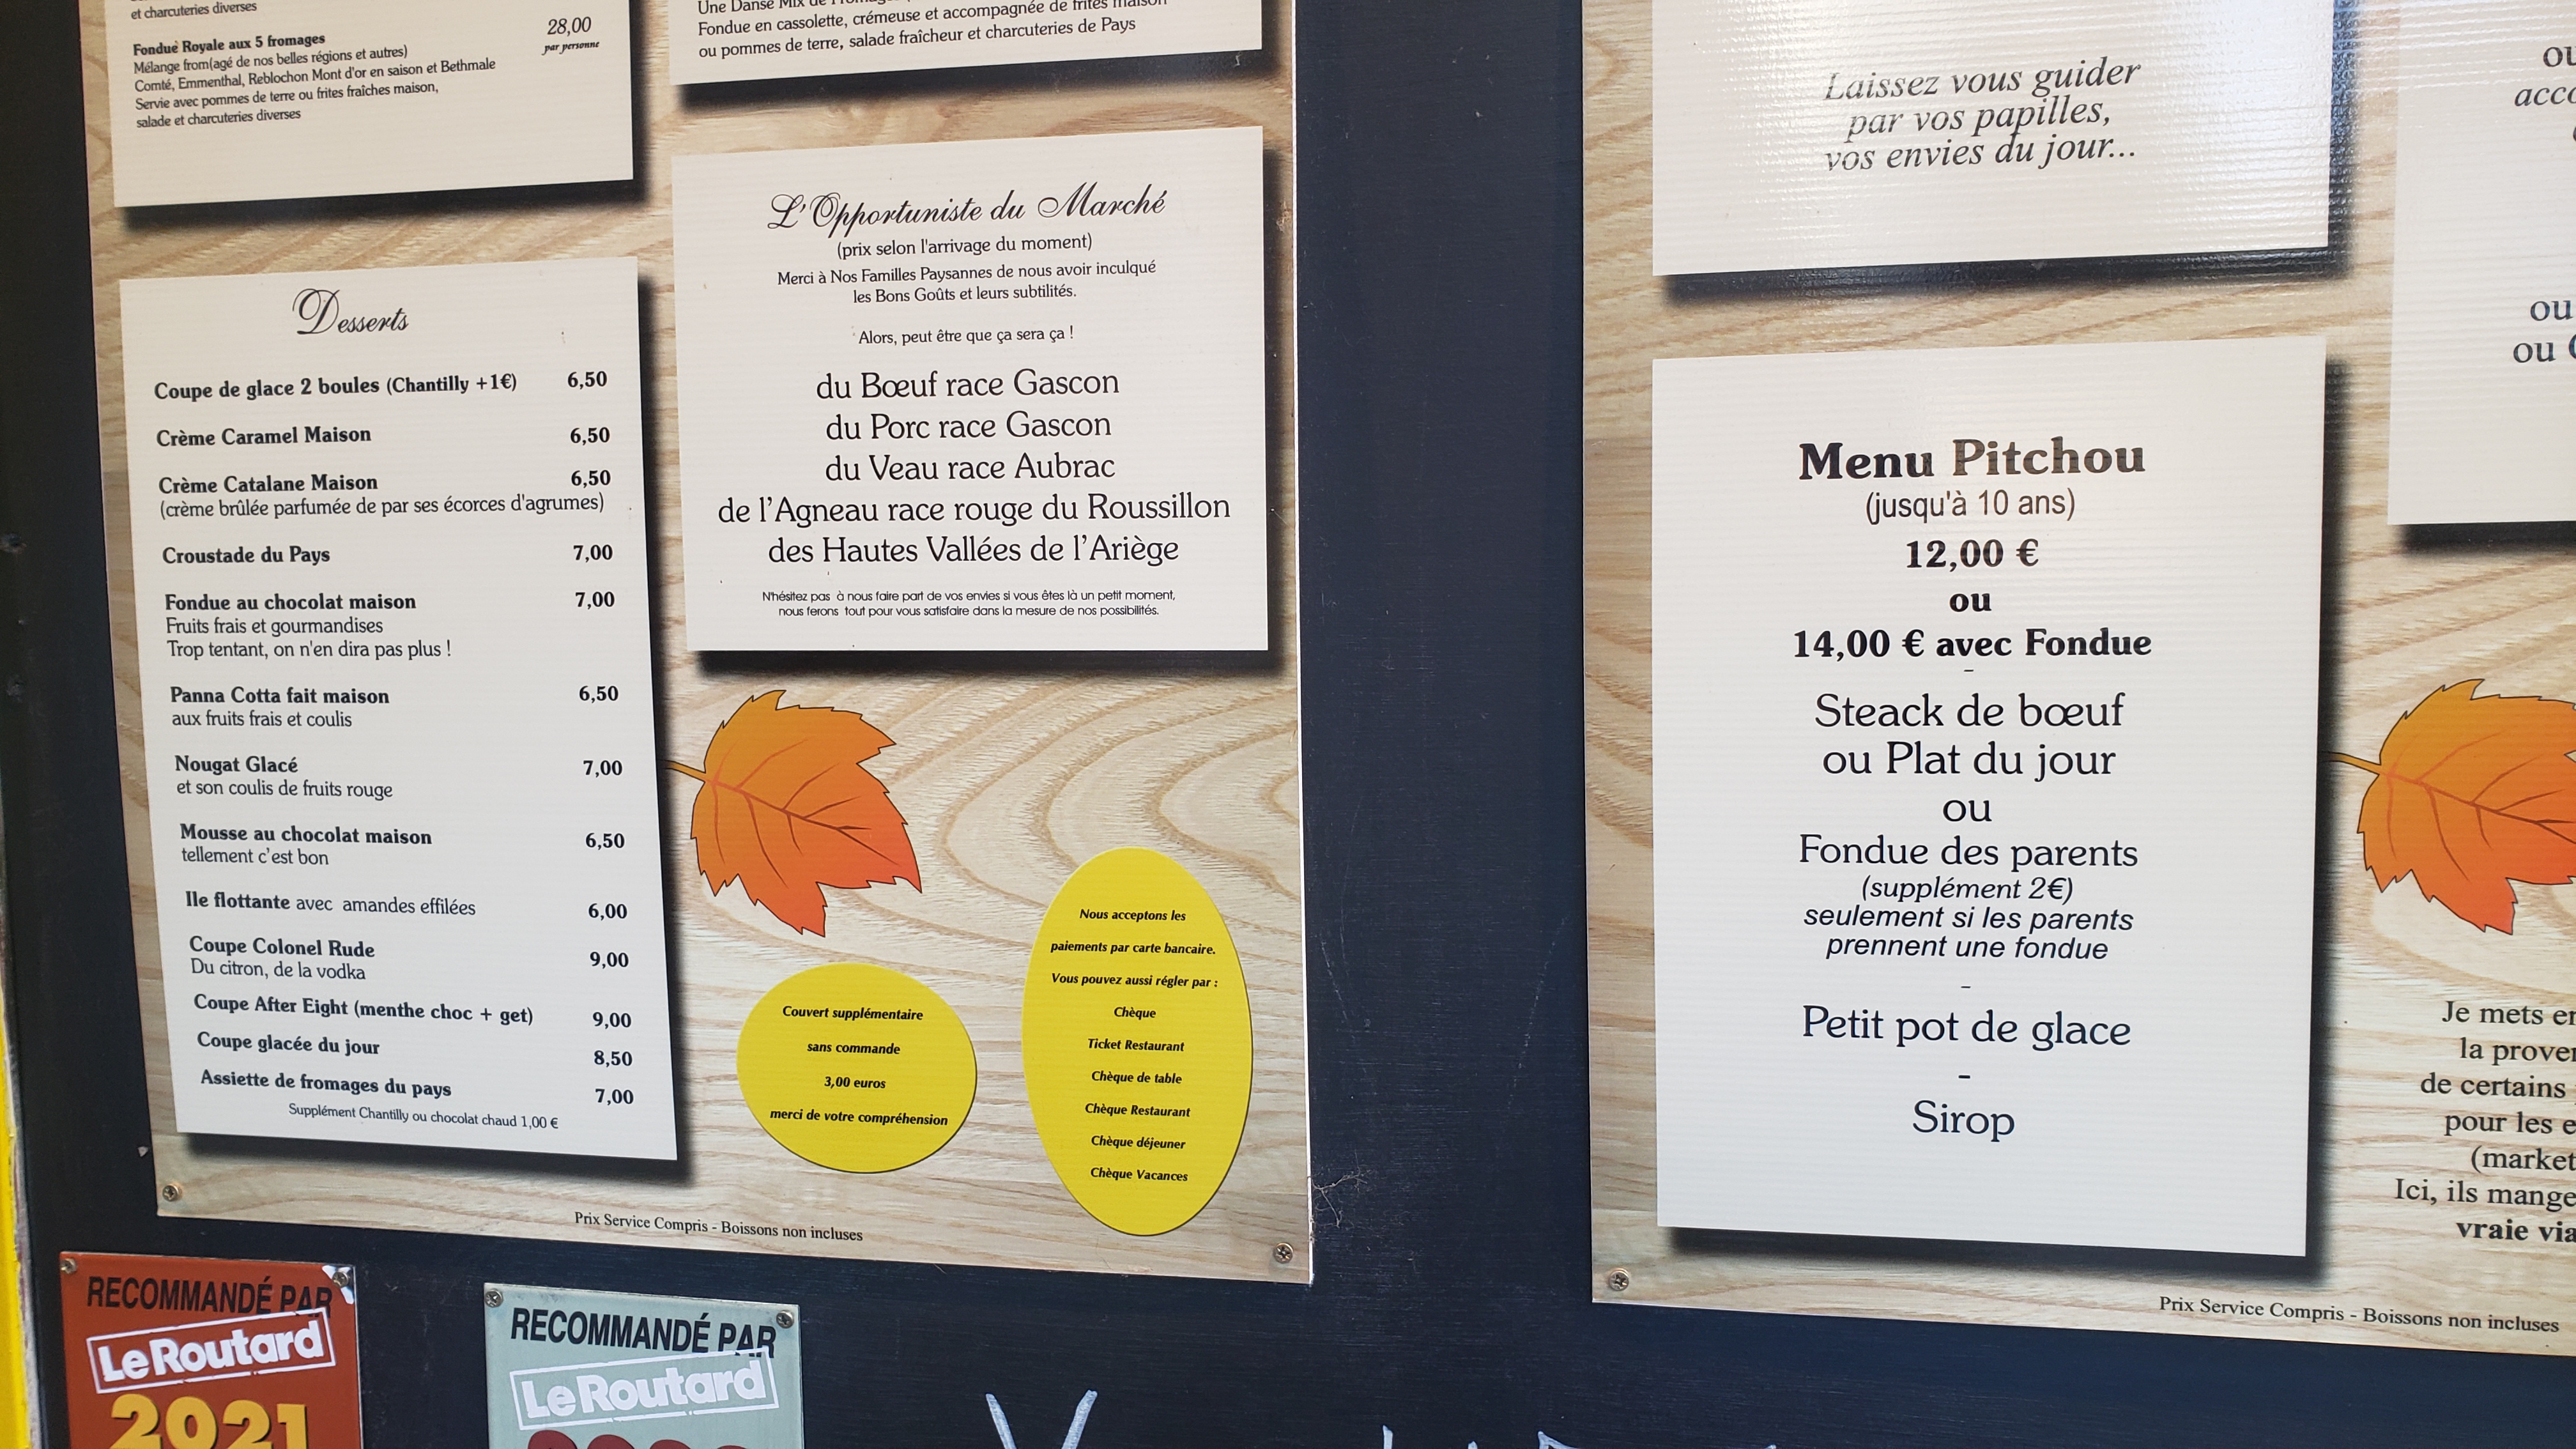 et charcuteries diverses
Fondue Royale aux 5 fromages
28,00
par personne
Mélange from(agé de nos belles régions et autres)
Comté, Emmenthal, Reblochon Mont d'or en saison et Bethmale
Servie avec pommes de terre ou frites fraîches maison,
salade et charcuteries diverses
Desserts
Coupe de glace 2 boules (Chantilly +1€) 6,50
Crème Caramel Maison 6,50
Crème Catalane Maison 6,50
(crème brûlée parfumée de par ses écorces d'agrumes)
Croustade du Pays 7,00
Fondue au chocolat maison 7,00
Fruits frais et gourmandises
Trop tentant, on n'en dira pas plus !
Panna Cotta fait maison 6,50
aux fruits frais et coulis
Nougat Glacé 7,00
et son coulis de fruits rouge
Mousse au chocolat maison 6,50
tellement c'est bon
Ile flottante avec amandes effilées 6,00
Coupe Colonel Rude 9,00
Du citron, de la vodka
Coupe After Eight (menthe choc + get) 9,00
Coupe glacée du jour 8,50
Assiette de fromages du pays 7,00
Supplément Chantilly ou chocolat chaud 1,00 €
Une Danse Mix de
Fondue en cassolette, crémeuse et accompagnée de frites maison
ou pommes de terre, salade fraîcheur et charcuteries de Pays
L'Opportuniste du Marché
(prix selon l'arrivage du moment)
Merci à Nos Familles Paysannes de nous avoir inculqué
les Bons Goûts et leurs subtilités.
Alors, peut être que ça sera ça !
du Bœuf race Gascon
du Porc race Gascon
du Veau race Aubrac
de l'Agneau race rouge du Roussillon
des Hautes Vallées de l'Ariège
N'hésitez pas à nous faire part de vos envies si vous êtes là un petit moment,
nous ferons tout pour vous satisfaire dans la mesure de nos possibilités.
Couvert supplémentaire
sans commande
3,00 euros
merci de votre compréhension
Nous acceptons les
paiements par carte bancaire.
Vous pouvez aussi régler par :
Chèque
Ticket Restaurant
Chèque de table
Chèque Restaurant
Chèque déjeuner
Chèque Vacances
Prix Service Compris - Boissons non incluses
RECOMMANDÉ PAR
Le Routard
2021
RECOMMANDÉ PAR
Le Routard
Laissez vous guider
par vos papilles,
vos envies du jour...
Menu Pitchou
(jusqu'à 10 ans)
12,00 €
ou
14,00 € avec Fondue
-
Steack de bœuf
ou Plat du jour
ou
Fondue des parents
(supplément 2€)
seulement si les parents
prennent une fondue
-
Petit pot de glace
-
Sirop
ou
ou
Je mets
la
de certains
pour les
Ici, ils
vraie
Prix Service Compris - Boissons non incluses